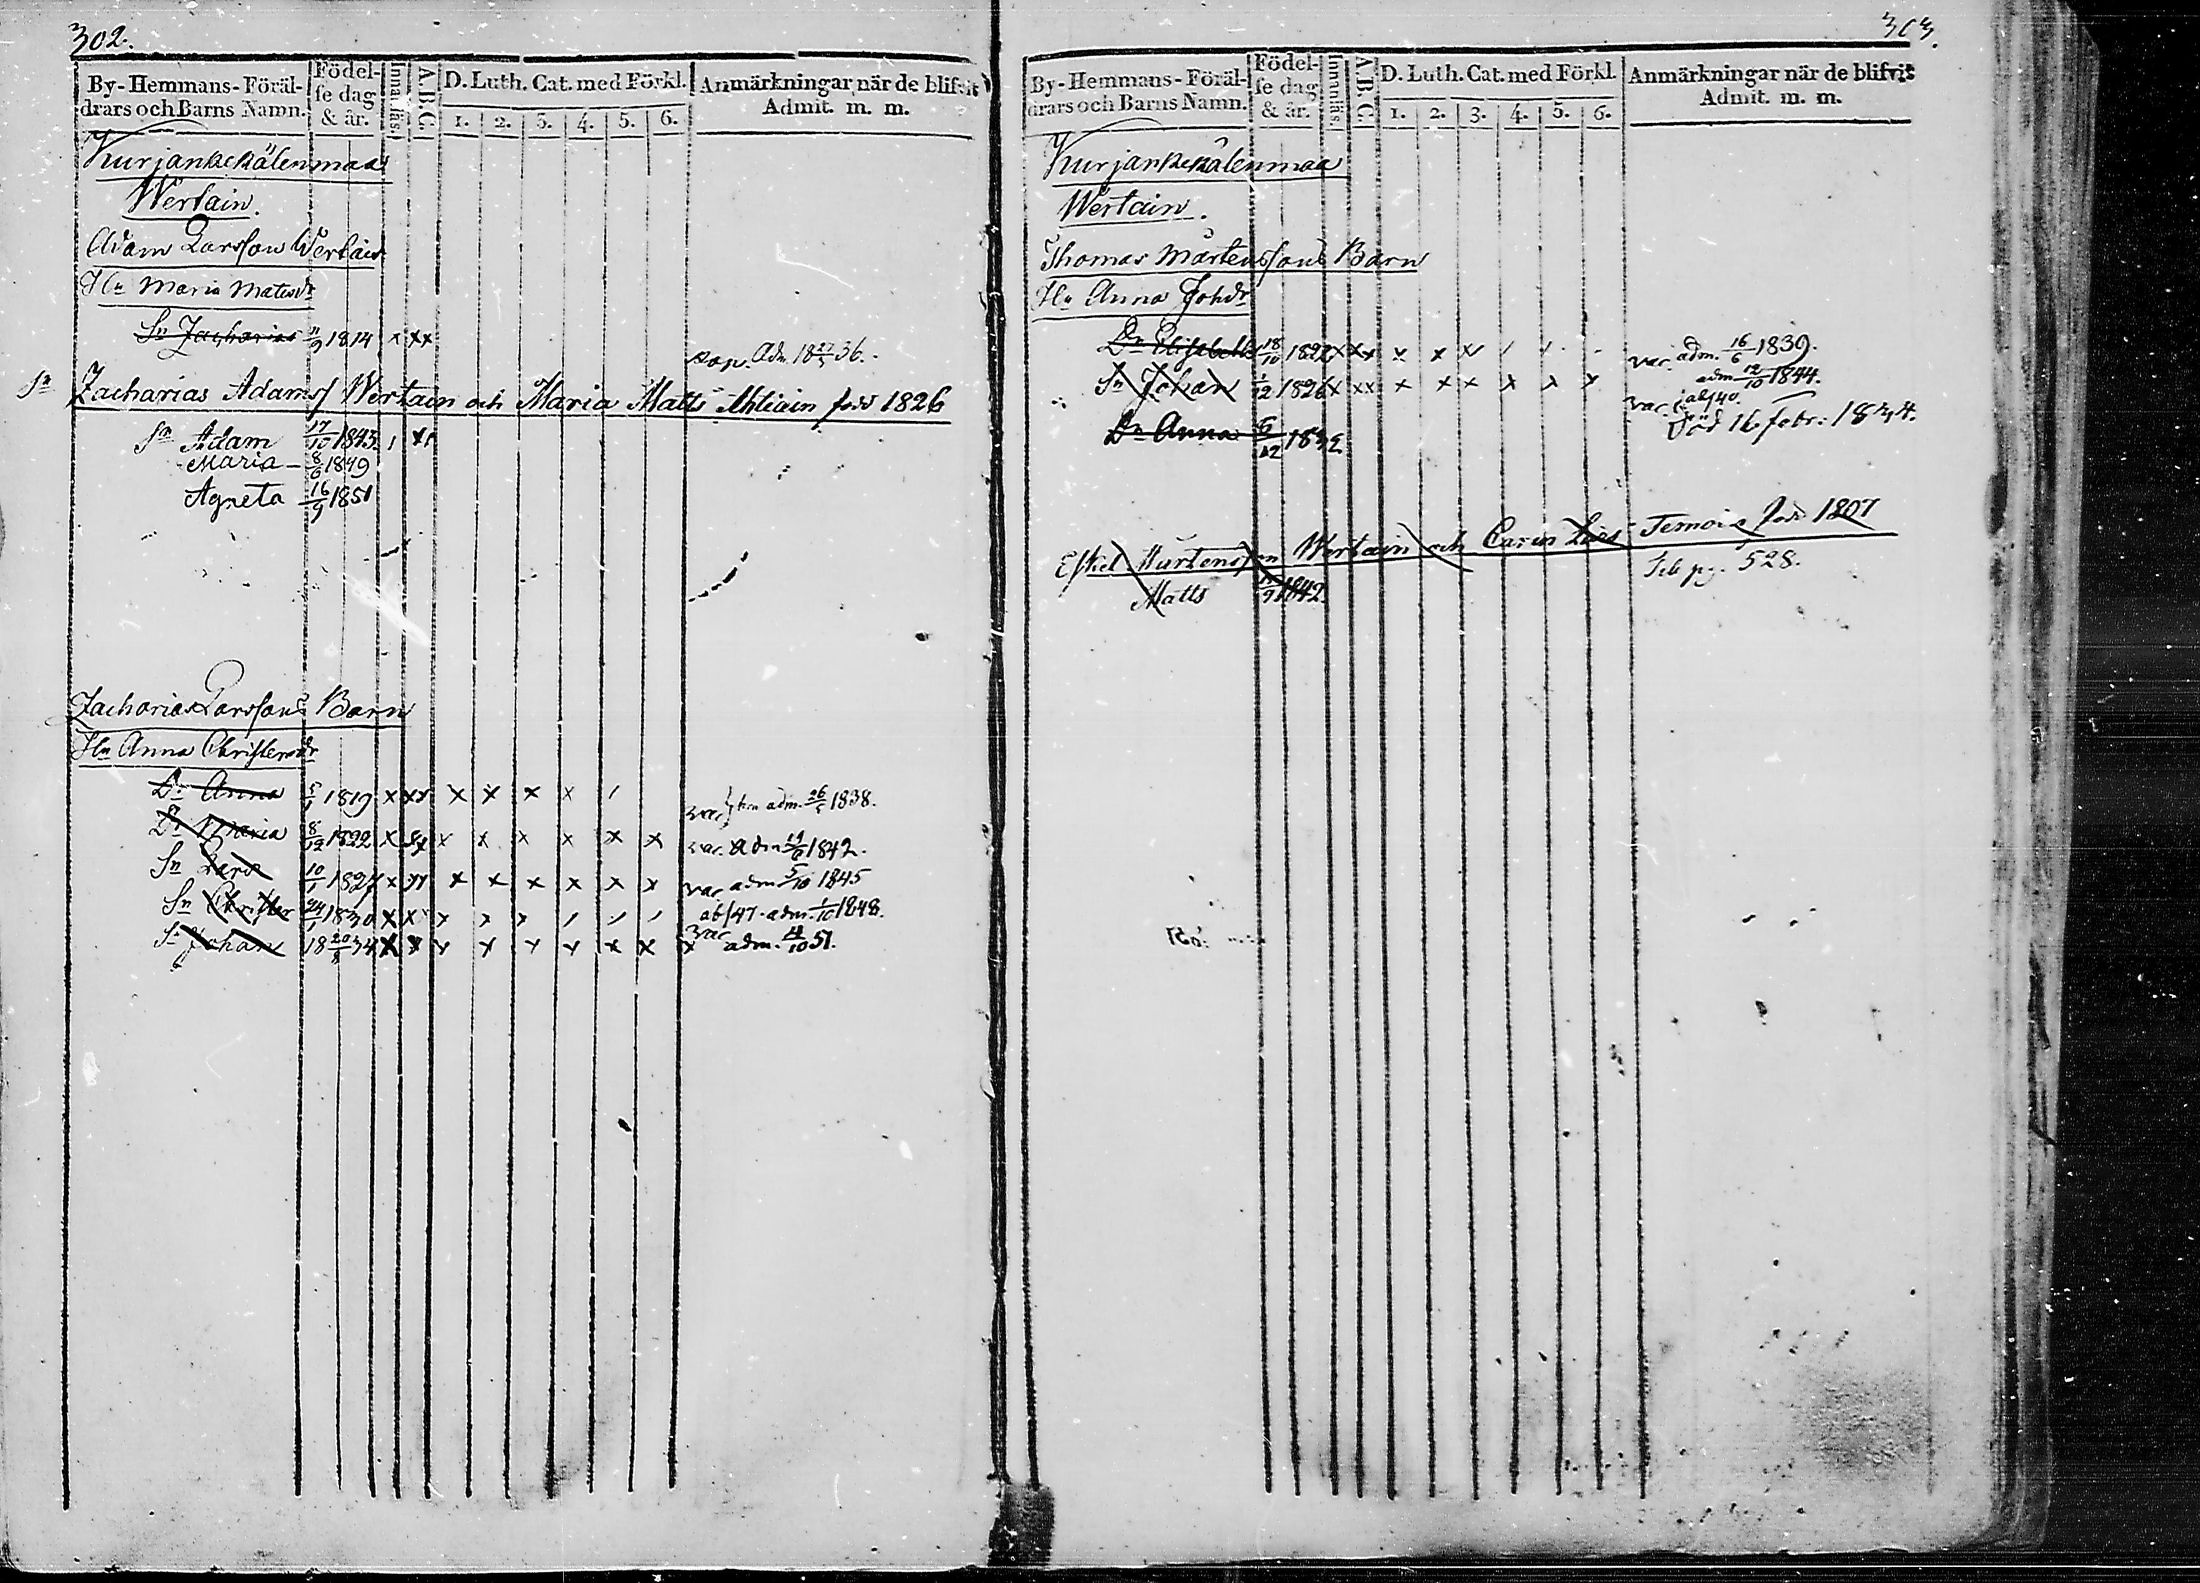 302.
By-Hemmans-Föräl-
drars och Barns Namn.
Födel-
se dag
& år.
Innanläs.
A.B.C.
D. Luth. Cat. med Förkl.
1. 2. 3. 4. 5. 6.
Anmärkningar när de blifvit
Admit. m. m.
Kurjankekälenmaa
Wertain.
Adam Larsson Wertain
Hu Maria Matsdr
Sn Zacharias 11/9 1814 x xx
cop. Adm. 18 27/5 36.
Sn Zacharias Adamss Wertain och Maria Matts Ahliain född 1826
Sn Adam 17/10 1843
Maria 8/6 1849
Agneta 16/9 1851
Zacharias Larssons Barn
Hu Anna Christersdr
Dr Anna 5/1 1819 x xx x x x x /
var adm. 26/5 1838.
Dr Maria 8/12 1822 x xx x x x x x x
var. adm 1842.
Sn Lars 10/1 1827 x xx x x x x x x
var adm 5/10 1845
Sn Christer 24/1 1830 x x x x x / / /
abs 47. adm. 1/10 1848.
Sn Johan 18 20/8 34 x x x x x x x x
var adm. 12/10 51.
303.
By-Hemmans-Föräl-
drars och Barns Namn.
Födel-
se dag
& år.
Innanläs.
A.B.C.
D. Luth. Cat. med Förkl.
1. 2. 3. 4. 5. 6.
Anmärkningar när de blifvit
Admit. m. m.
Kurjankekälenmaa
Wertain.
Thomas Mårtenssons Barn
Hu Anna Johdr
Dr Elisabeth 18/10 1822 x xx x x x / /
var. adm. 16/6 1839.
Sn Johan 1/12 1826 x xx x x x x x x
adm 12/10 1844.
var.
Dr Anna 6/12 1832
Död 16 febr: 1834.
Eskel Mårtensson Wertain och Carin Lars Temois född 1807
Matts 1842.
Se pg. 528.